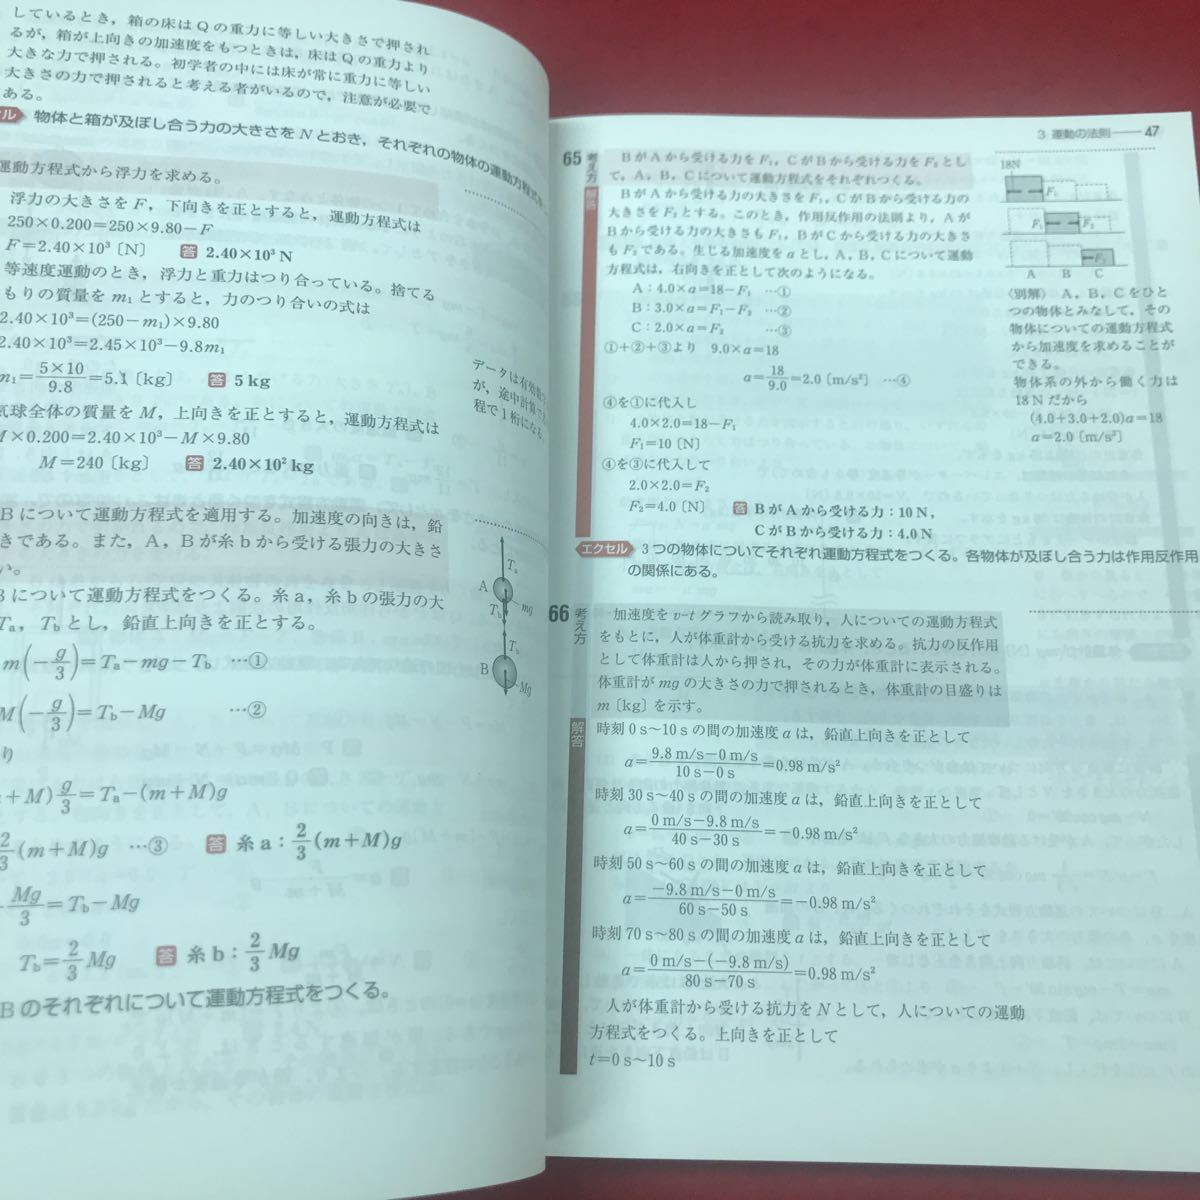 しているとき，箱の床はQの重力に等しい大きさで押され
るが，箱が上向きの加速度をもつときは，床はQの重力より
大きな力で押される。初学者の中には床が常に重力に等しい
大きさの力で押されると考える者がいるので，注意が必要で
ある。
物体と箱が及ぼし合う力の大きさをNとおき，それぞれの物体の運動方程式を
運動方程式から浮力を求める。
浮力の大きさをF，下向きを正とすると，運動方程式は
250×0.200=250×9.80−F
F=2.40×10³〔N〕 答 2.40×10³ N
等速度運動のとき，浮力と重力はつり合っている。捨てる
もりの質量をm₁とすると，力のつり合いの式は
2.40×10³=(250−m₁)×9.80
2.40×10³=2.45×10³−9.8m₁
m₁=5×10/9.8=5.1〔kg〕 答 5 kg
気球全体の質量をM，上向きを正とすると，運動方程式は
M×0.200=2.40×10³−M×9.80
M=240〔kg〕 答 2.40×10² kg
データは有効数
が，途中計算で
程で1桁になる
Bについて運動方程式を適用する。加速度の向きは，鉛
きである。また，A，Bが糸bから受ける張力の大きさ
い。
Bについて運動方程式をつくる。糸a，糸bの張力の大
Ta，Tbとし，鉛直上向きを正とする。
m(−g/3)=Ta−mg−Tb …①
M(−g/3)=Tb−Mg …②
り
+M)g/3=Ta−(m+M)g
2/3(m+M)g …③ 答 糸a：2/3(m+M)g
Mg/3=Tb−Mg
Tb=2/3Mg 答 糸b：2/3Mg
Bのそれぞれについて運動方程式をつくる。
Ta
A
Tb
mg
B
Mg
3 運動の法則 47
65
考え方
BがAから受ける力をF₁，CがBから受ける力をF₂とし
て，A，B，Cについて運動方程式をそれぞれつくる。
解答
BがAから受ける力の大きさをF₁，CがBから受ける力の
大きさをF₂とする。このとき，作用反作用の法則より，Aが
Bから受ける力の大きさもF₁，BがCから受ける力の大きさ
もF₂である。生じる加速度をaとし，A，B，Cについて運動
方程式は，右向きを正として次のようになる。
A：4.0×a=18−F₁ …①
B：3.0×a=F₁−F₂ …②
C：2.0×a=F₂ …③
①+②+③より 9.0×a=18
a=18/9.0=2.0〔m/s²〕 …④
④を①に代入し
4.0×2.0=18−F₁
F₁=10〔N〕
④を③に代入して
2.0×2.0=F₂
F₂=4.0〔N〕 答 BがAから受ける力：10 N，
CがBから受ける力：4.0 N
18N
F₁
F₁ F₂
F₂
A B C
〈別解〉 A，B，Cをひと
つの物体とみなして，その
物体についての運動方程式
から加速度を求めることが
できる。
物体系の外から働く力は
18 Nだから
(4.0+3.0+2.0)a=18
a=2.0〔m/s²〕
エクセル 3つの物体についてそれぞれ運動方程式をつくる。各物体が及ぼし合う力は作用反作用
の関係にある。
66
考え方
加速度をv−tグラフから読み取り，人についての運動方程式
をもとに，人が体重計から受ける抗力を求める。抗力の反作用
として体重計は人から押され，その力が体重計に表示される。
体重計がmgの大きさの力で押されるとき，体重計の目盛りは
m〔kg〕を示す。
解答
時刻0 s〜10 sの間の加速度aは，鉛直上向きを正として
a=9.8 m/s−0 m/s/10 s−0 s=0.98 m/s²
時刻30 s〜40 sの間の加速度aは，鉛直上向きを正として
a=0 m/s−9.8 m/s/40 s−30 s=−0.98 m/s²
時刻50 s〜60 sの間の加速度aは，鉛直上向きを正として
a=−9.8 m/s−0 m/s/60 s−50 s=−0.98 m/s²
時刻70 s〜80 sの間の加速度aは，鉛直上向きを正として
a=0 m/s−(−9.8 m/s)/80 s−70 s=0.98 m/s²
人が体重計から受ける抗力をNとして，人についての運動
方程式をつくる。上向きを正として
t=0 s〜10 s